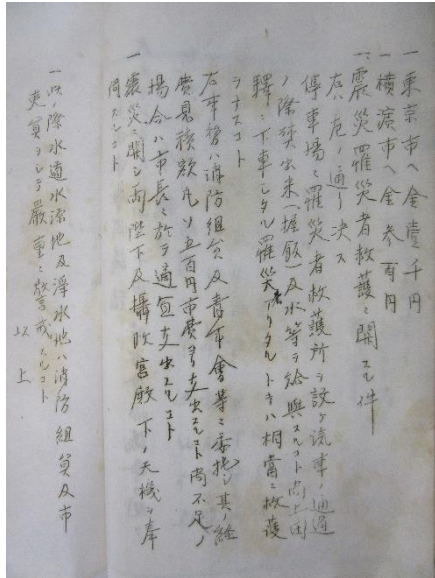 一東京市ヘ金壹千円
一横濱市ヘ金参百円
一震災罹災者救護ニ関スル件
右ハ左ノ通リ決ス
停車場ニ罹災者救護所ヲ設ケ汽車ノ通過
ノ際焚出米(握飯)及水等ヲ給與スルコト尚上田
驛ニ下車シタル罹災者アリタルトキハ相當ニ救護
ヲナスコト
右事務ハ消防組員及青年會等ニ委托シ其ノ経
費見積額凡ソ五百円市費ヨリ支出スルコト尚不足ノ
場合ハ市長ニ於テ適宜支出スルコト
一震災ニ関シ両陛下及攝政宮殿下ノ天機ヲ奉
伺スルコト
一此ノ際水道水源地及浄水池ハ消防組員及市
吏員ヲシテ嚴重ニ警戒スルコト
以上